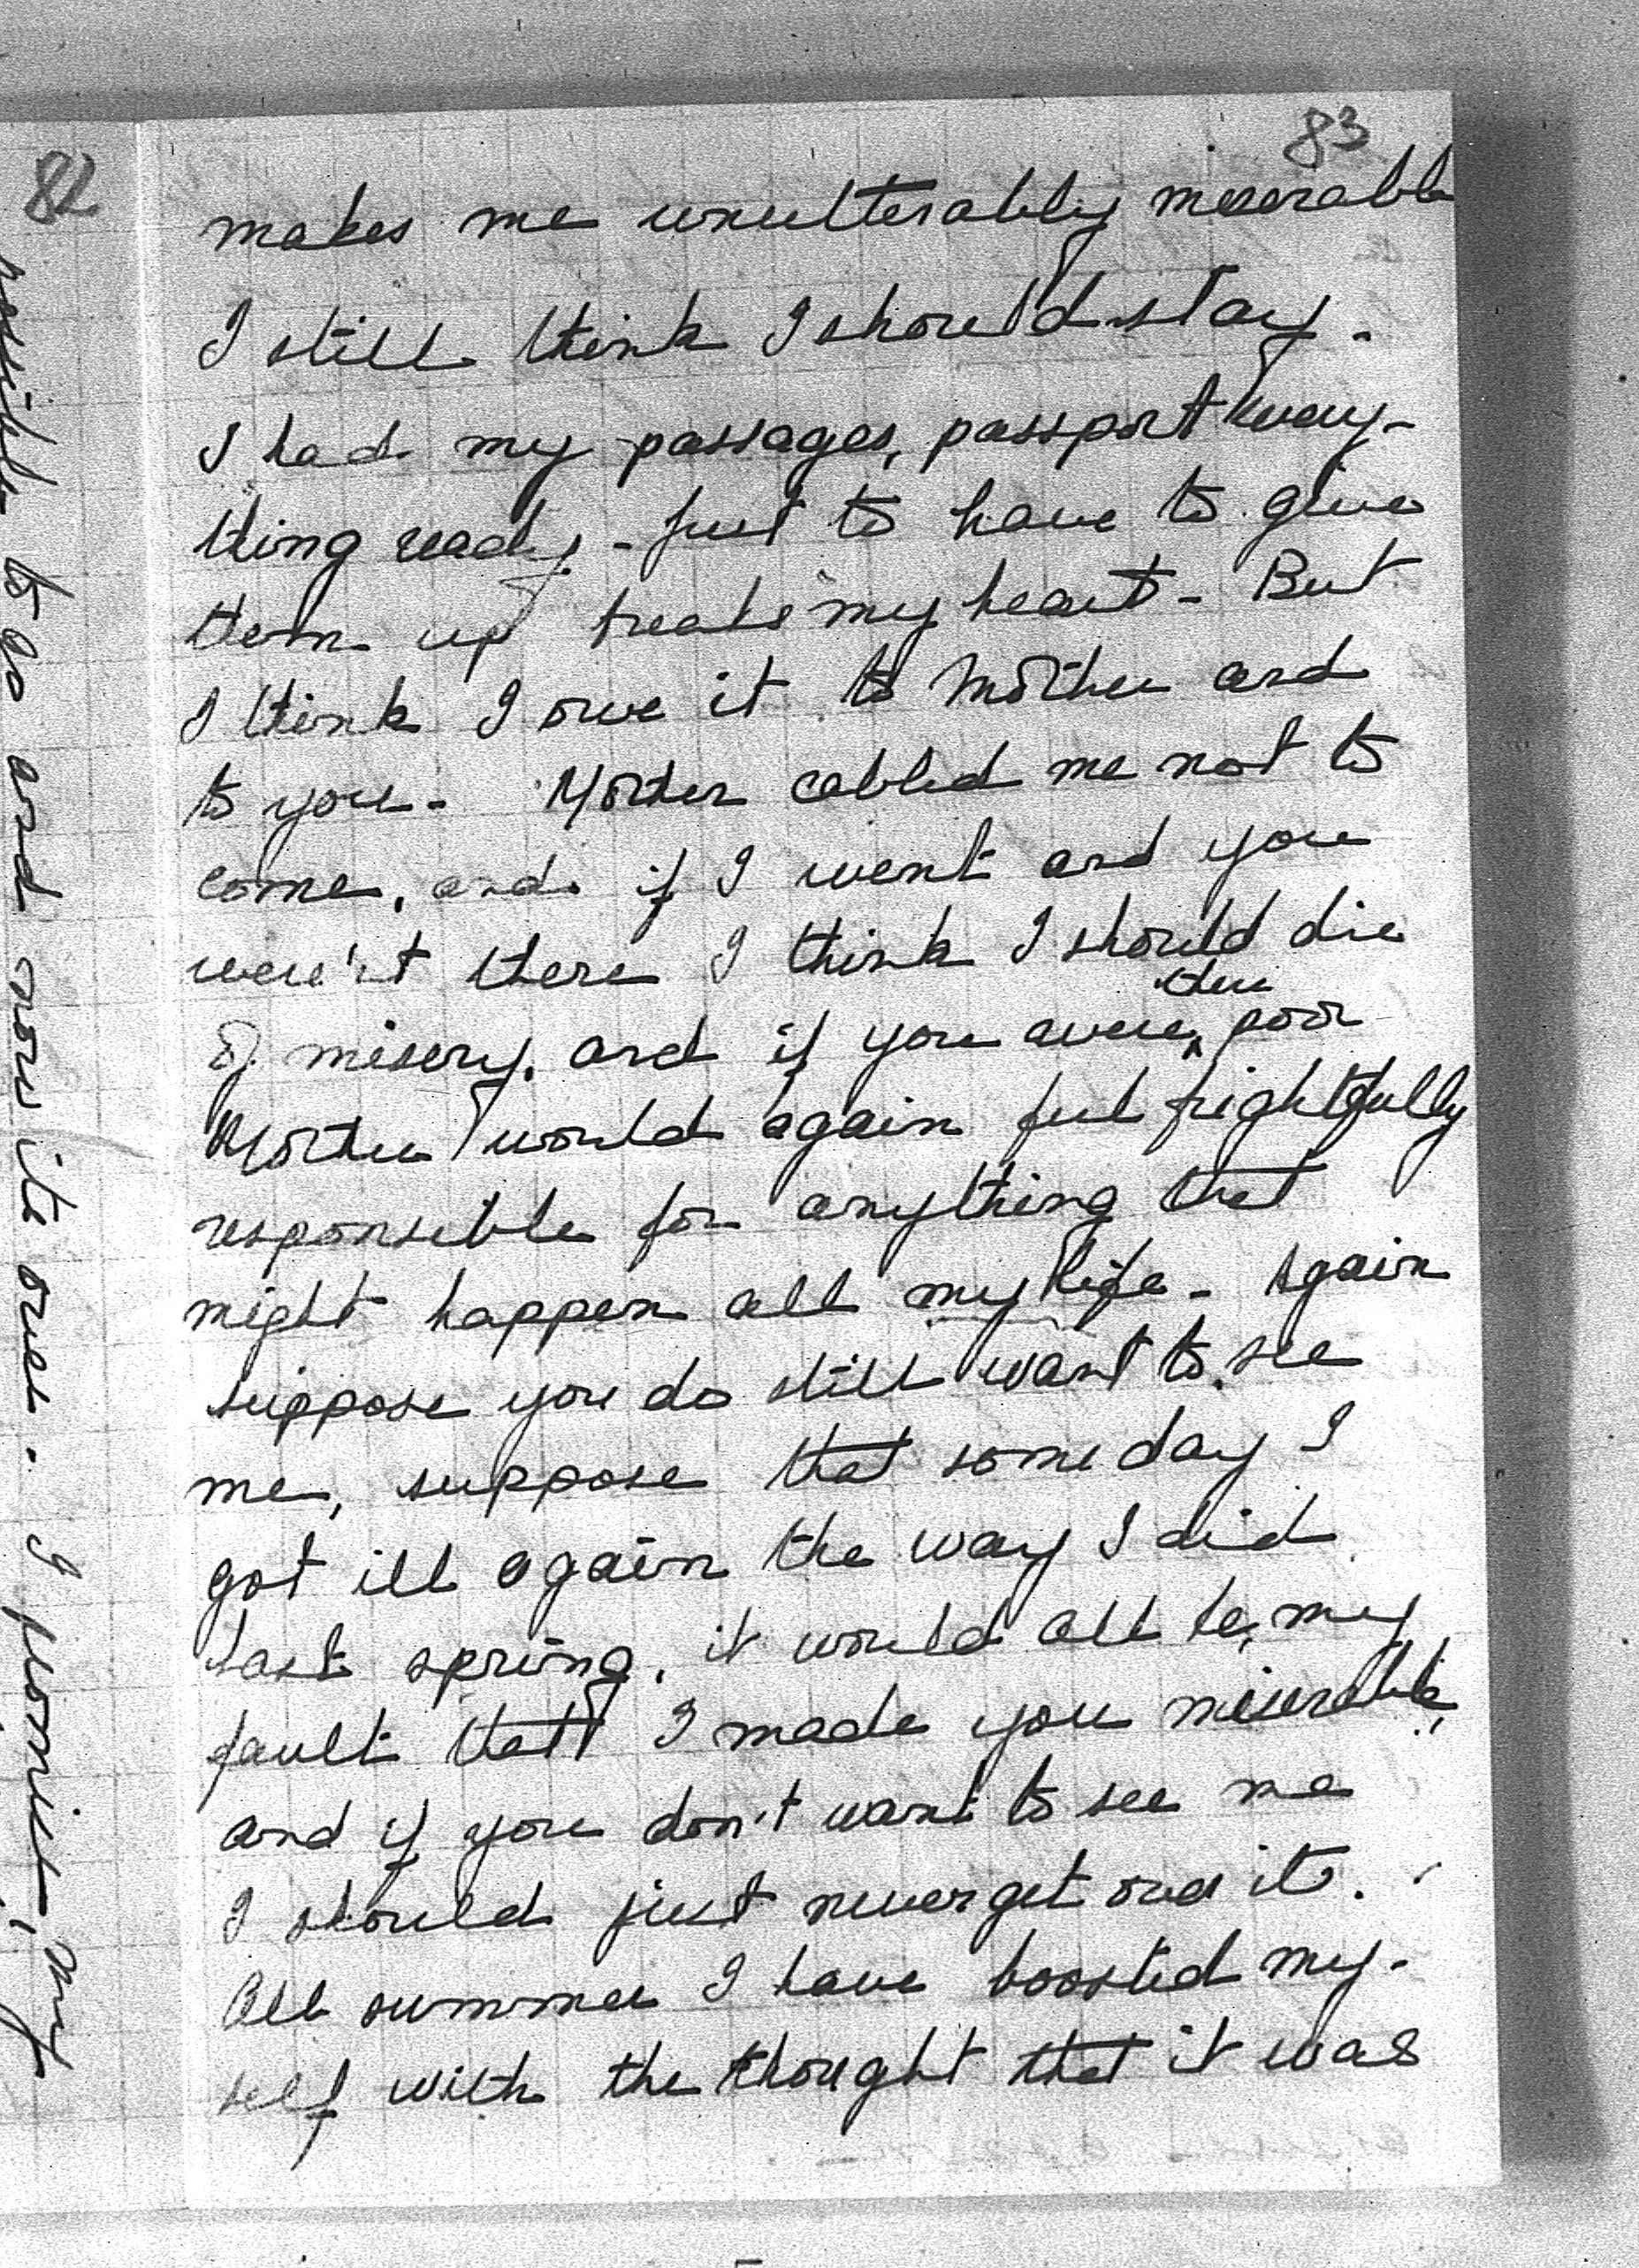 82
possible to go and now its over. I permit, my
83
makes me unutterably miserable
I still think I should stay.
I had my passages, passport every-
thing ready - just to have to give
them up breaks my heart - But
I think I owe it to Mother and
to you - Mother cabled me not to
come, and if I went and you
were'nt there I think I should die
of misery. and if you were there poor
Mother would again feel frightfully
responsible for anything that
might happen all my life - Again
suppose you do still want to see
me, suppose that some day I
got ill again the way I did
last spring, it would all be my
fault that I made you miserable,
and if you don't want to see me
I should just never get over it.
All summer I have boosted my-
self with the thought that it was